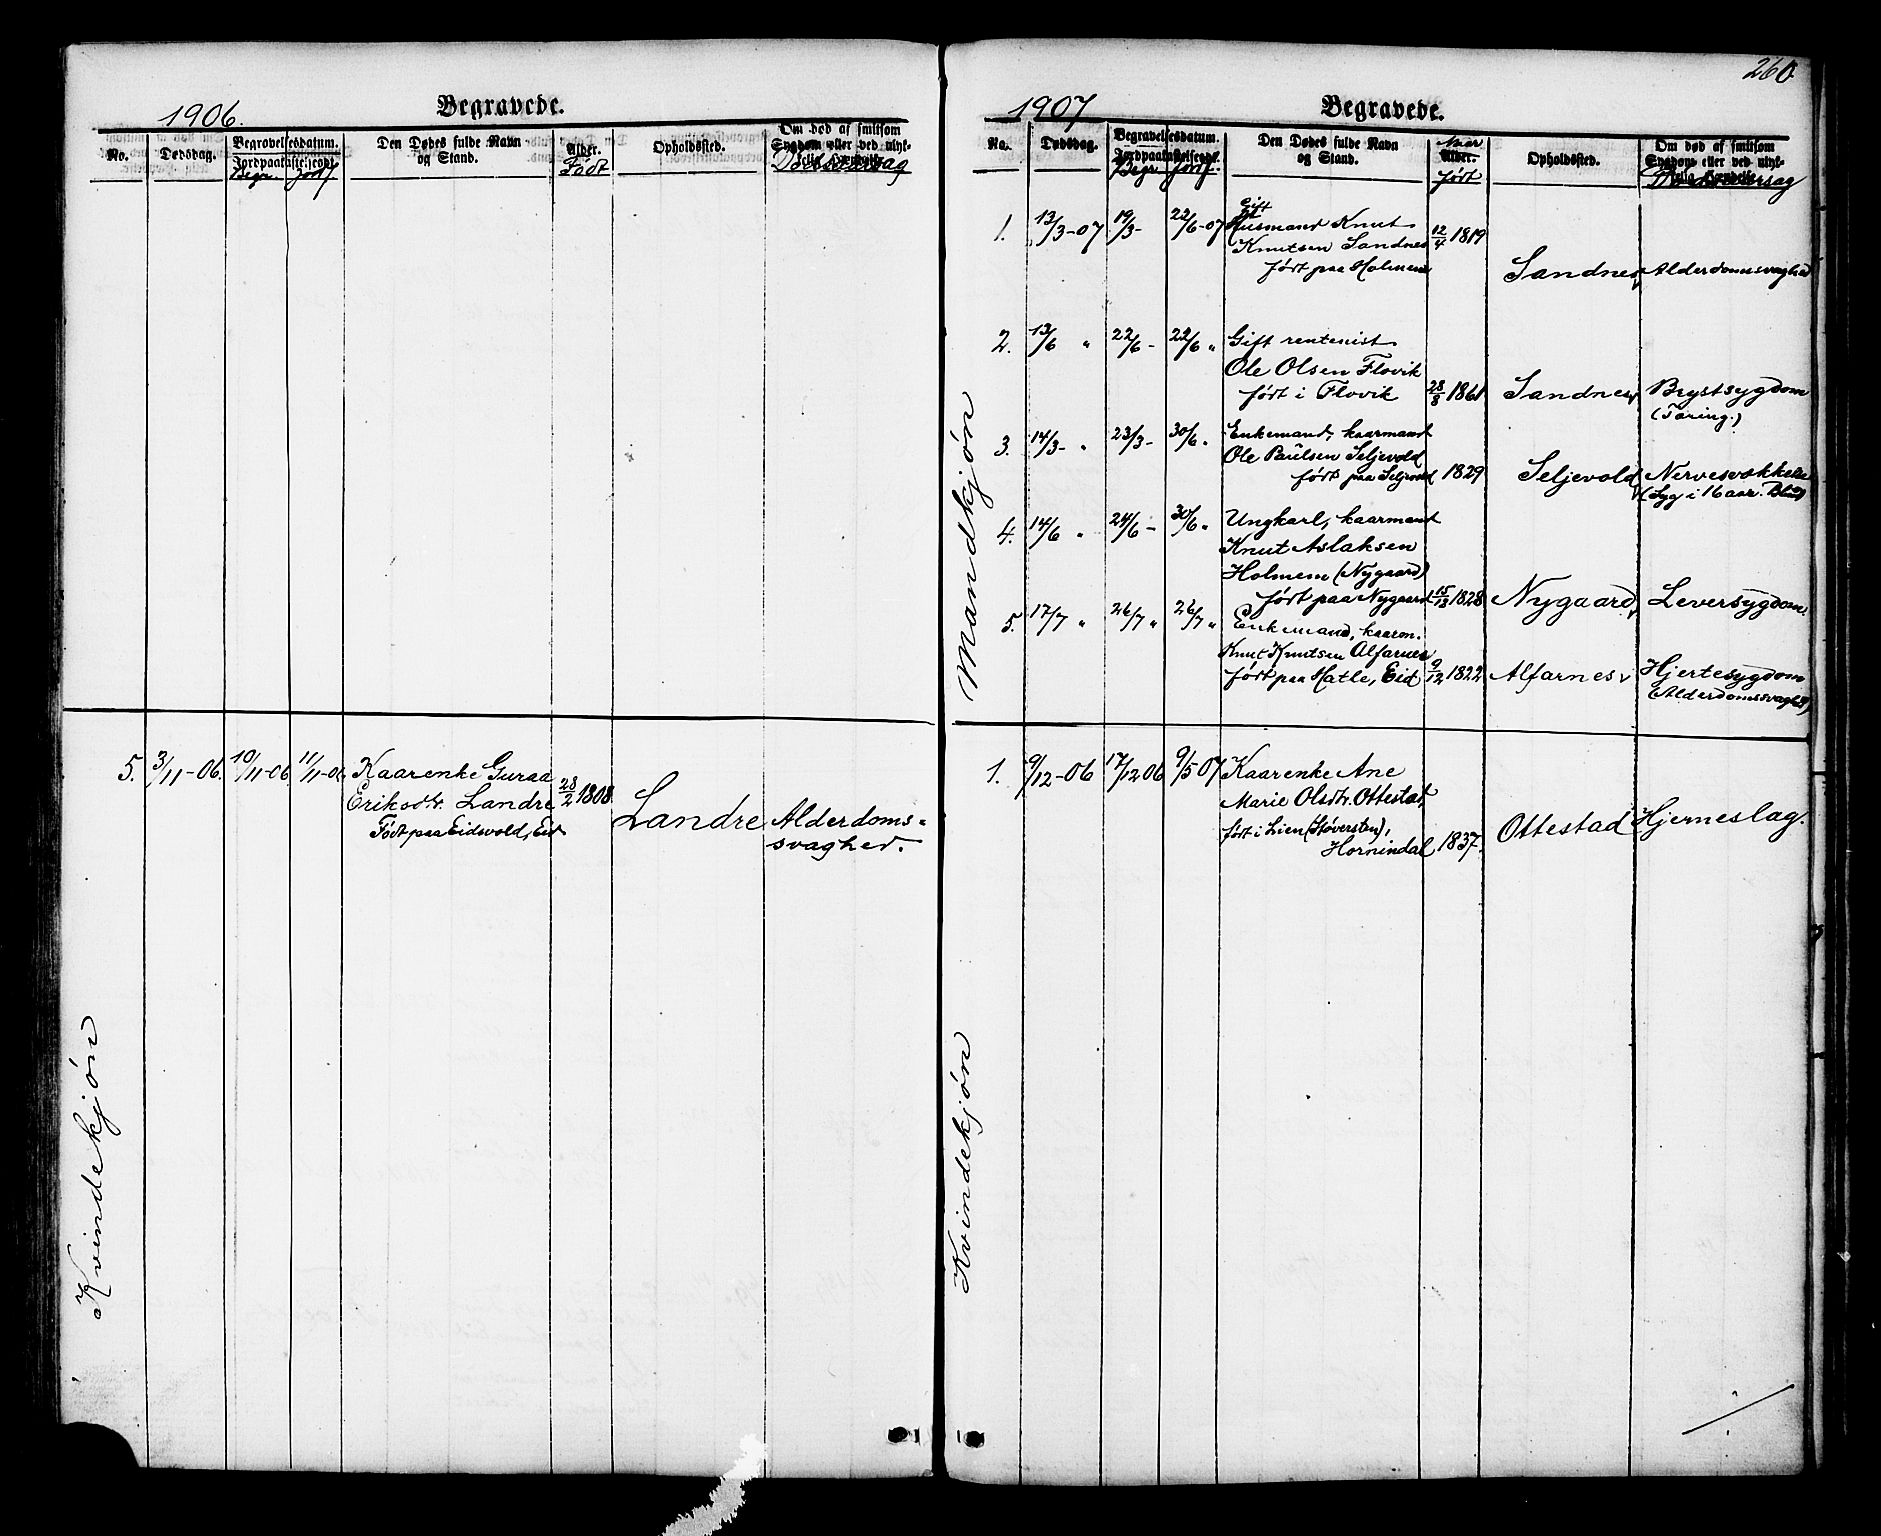 1906.
Begravede.
No.
Dødsdag.
Begravelsesdatum.
Jordpaakastelsen
Begr
Jordf
Den Dødes fulde Navn
og Stand.
Alder.
Født
Opholdssted.
Om død af smitsom
Sygdom eller ved ulyk-
Dødsaarsag
5.
3/11-06.
10/11-06
11/11-06
Kaarenke Guraa
Eriksdtr. Landre
Født paa Eidsvold, Eid
28/2 1808.
Landre
Alderdoms-
svaghed.
Kvindekjøn
260
1907
Begravede.
No.
Dødsdag.
Begravelsesdatum.
Begr
Jordf.
Den Dødes fulde Navn
og Stand.
Alder.
født
Opholdssted.
Om død af smitsom
Sygdom eller ved ulyk-
Dødsaarsag
Mandkjøn
1.
13/3-07
19/3-
22/6-07
Gift
Husmand Knut
Knutsen Sandnes
født paa Holmem
12/4 1819
Sandnes
Alderdomssvaghed
2.
13/6 "
22/6-
22/6 "
Gift rentenist
Ole Olsen Flovik
født i Flovik
28/8 1861
Sandnes
Brystsygdom
(Tæring.)
3.
14/3- "
23/3-
30/6 "
Enkemand, kaarmand
Ole Paulsen Seljevold
født paa Seljevold
1829
Seljevold
Nervesvækkelse
(Syg i 16 aar. Blind)
4.
14/6 "
24/6-
30/6 "
Ungkarl, kaarmand
Knut Aslaksen
Holmem (Nygaard)
født paa Nygaard
1828
Nygaard
Leversygdom
5.
17/7 "
26/7 "
26/7 "
Enkemand, kaarm.
Knut Knutsen Alfarnes
født paa Hatle, Eid
9/12 1822
Alfarnes
Hjertesygdom
Alderdomssvaghed)
1.
9/12-06
17/12 06
9/5 07
Kaarenke Ane
Marie Olsdtr. Ottestad,
født i Lien (Støversten),
Hornindal
1837.
Ottestad
Hjerneslag.
Kvindekjøn